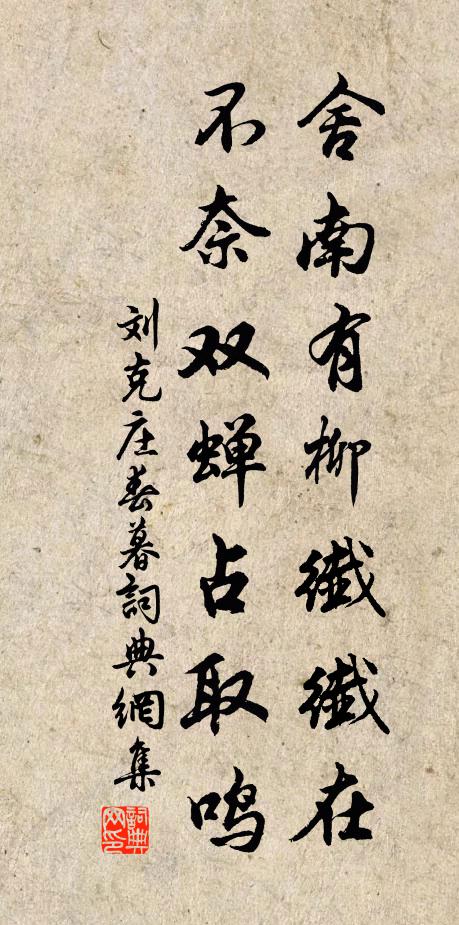 舍南有柳纖纖在
不奈双蝉占取鸣
刘克庄春暮詞典網集
詞典网印